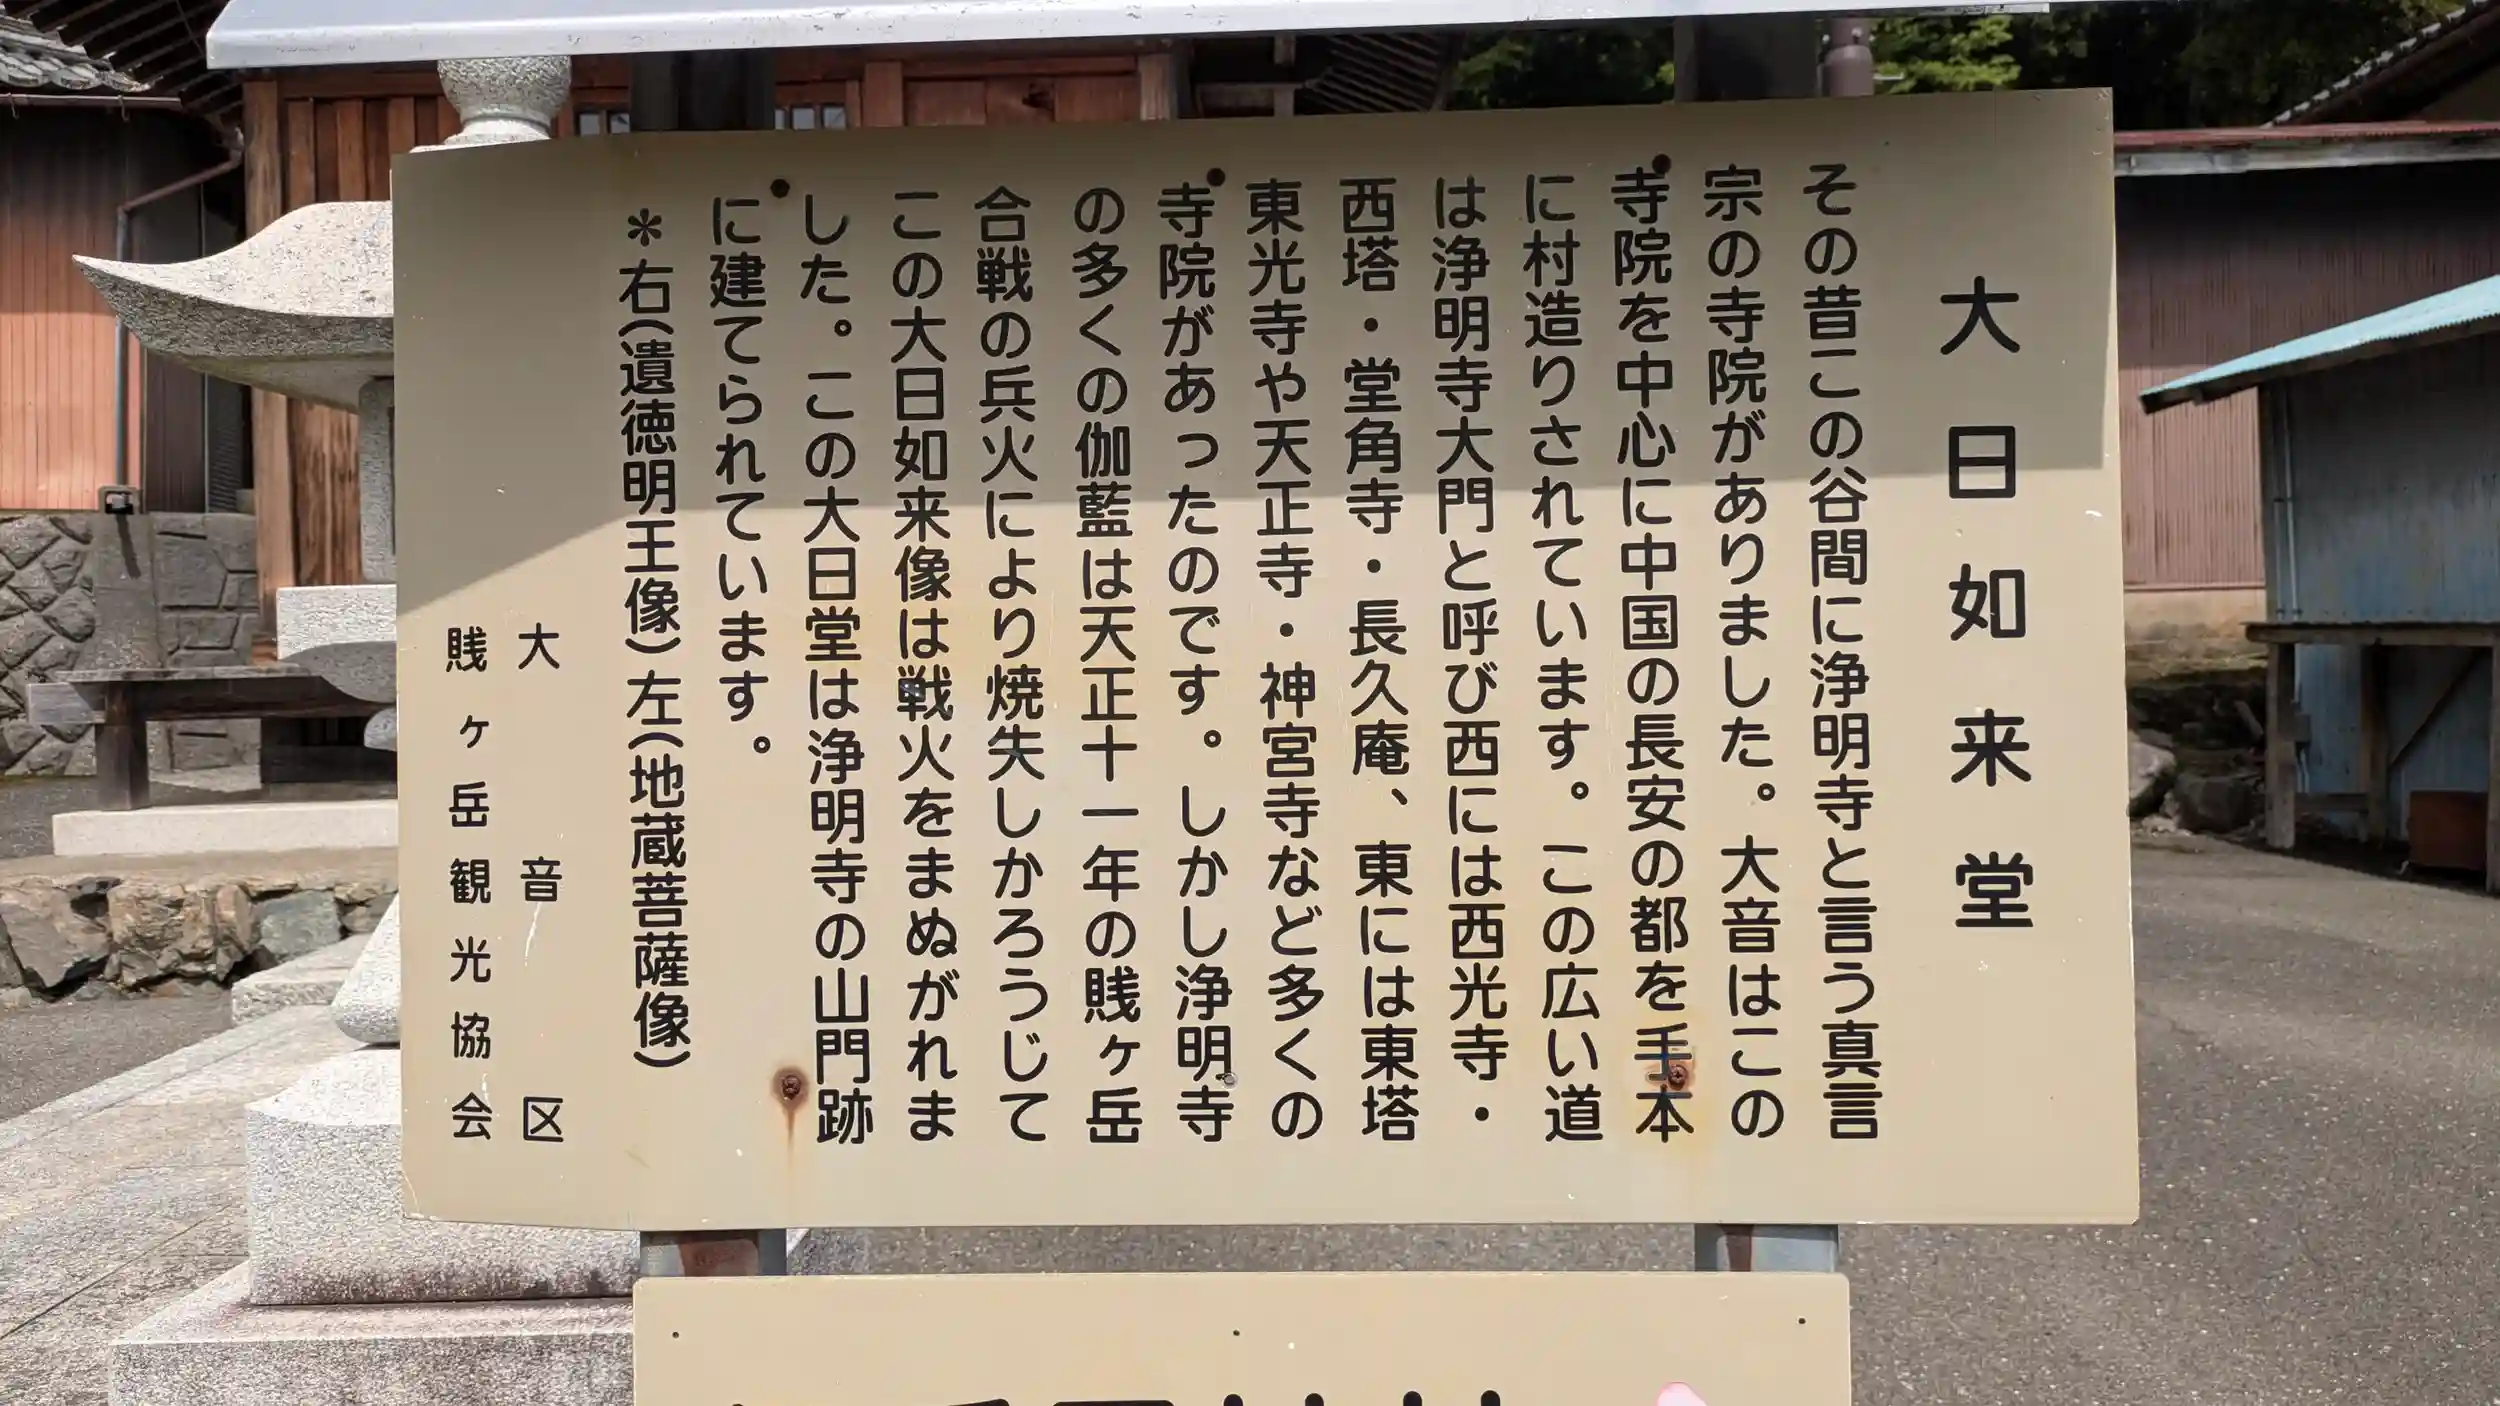 大日如来堂
その昔この谷間に浄明寺と言う真言
宗の寺院がありました。大音はこの
寺院を中心に中国の長安の都を手本
に村造りされています。この広い道
は浄明寺大門と呼び西には西光寺・
西塔・堂角寺・長久庵、東には東塔
東光寺や天正寺・神宮寺など多くの
寺院があったのです。しかし浄明寺
の多くの伽藍は天正十一年の賎ヶ岳
合戦の兵火により焼失しかろうじて
この大日如来像は戦火をまぬがれま
した。この大日堂は浄明寺の山門跡
に建てられています。
＊右(遺徳明王像)左(地蔵菩薩像)
大音区
賎ヶ岳観光協会